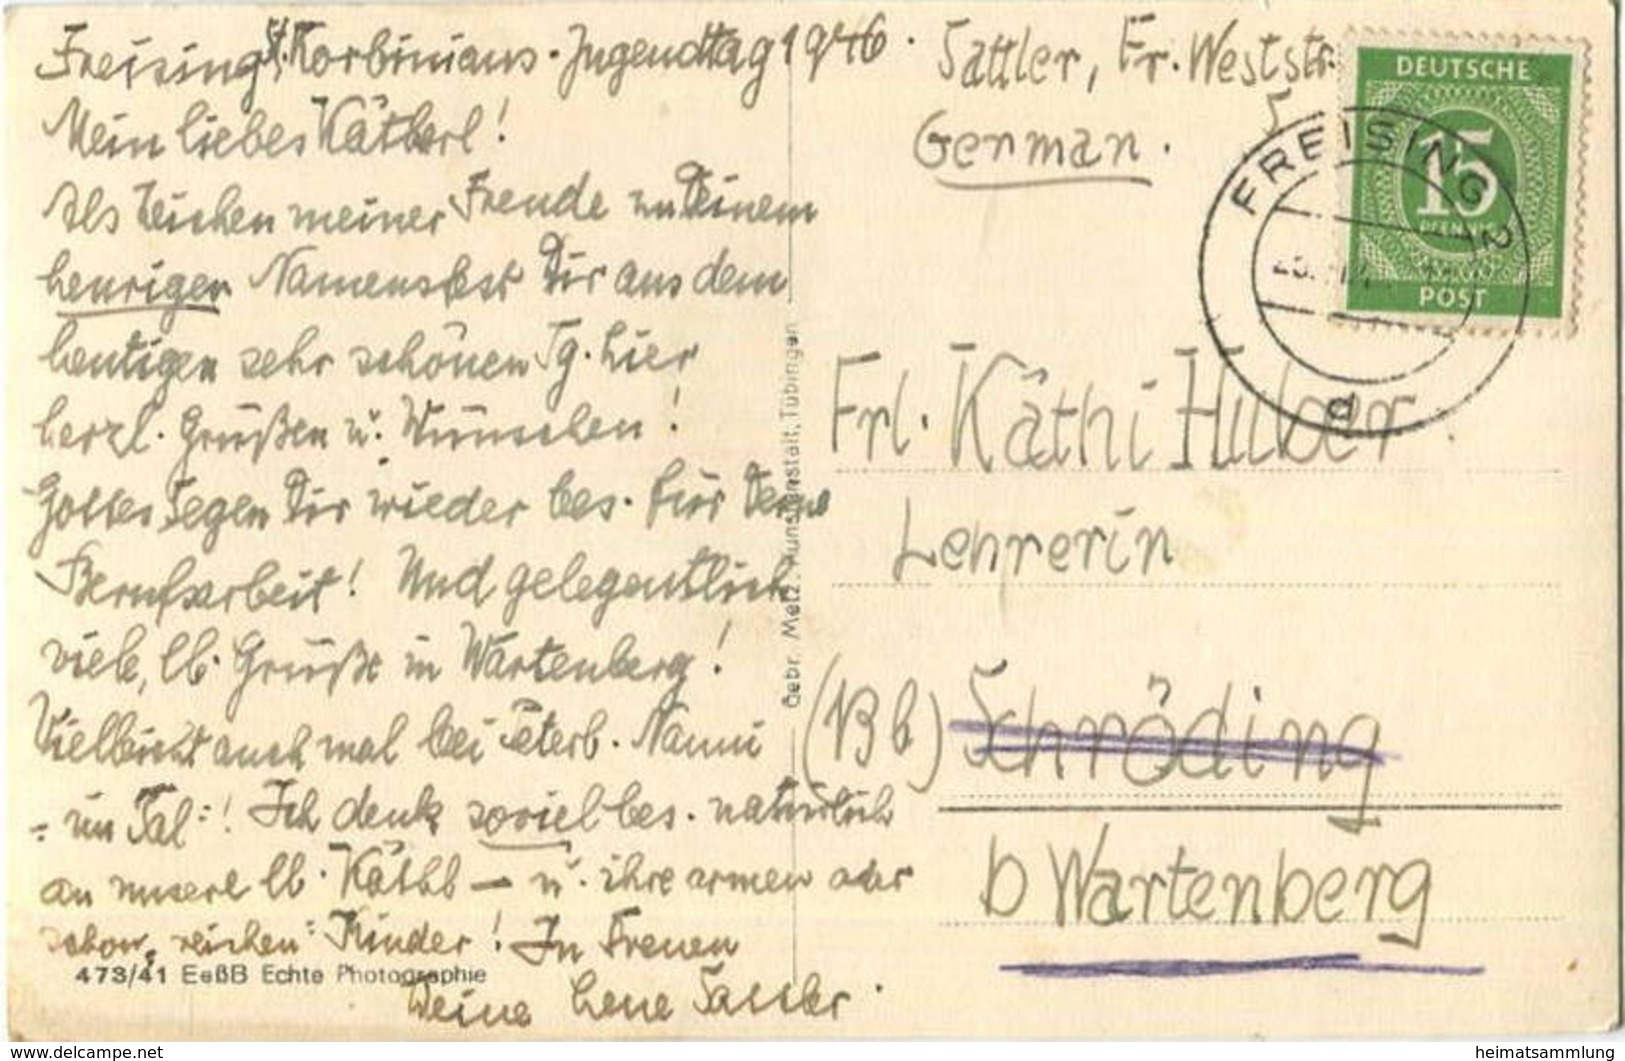 Freising, St. Korbinians-Jugendtag 1946.
Mein liebes Kätherl!
Als Zeichen meiner Freude zu Deinem
heurigen Namensfest Dir aus dem
heutigen sehr schönen Tg. hier
herzl. Grüßen u. Wünschen!
Gottes Segen Dir wieder bes. für Deine
Berufsarbeit! Und gelegentlich
viele, lb. Grüße in Wartenberg!
Vielleicht auch mal bei Nanni
- im Tal -! Ich denk soviel bes. natürlich
an unsere lb. - u. ihre armen oder
schon reichen Kinder! In Freuen
Deine Lene Sattler.
473/41 EeßB Echte Photographie
Gebr. Metz, Kunstanstalt, Tübingen
Sattler, Fr. Weststr.
5
German.
DEUTSCHE
15
PFENNIG
POST
FREISING 2
d
Frl. Käthi Huber
Lehrerin
(13b) Schröding
b Wartenberg
www.delcampe.net
heimatsammlung